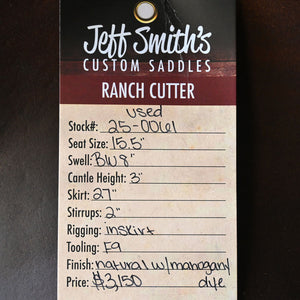 Jeff Smith's
CUSTOM SADDLES
RANCH CUTTER
used
Stock#: 25-0061
Seat Size: 15.5"
Swell: BW 8"
Cantle Height: 3"
Skirt: 27"
Stirrups: 2"
Rigging: inskirt
Tooling: F9
Finish: natural w/mahogany
dye
Price: $3,150